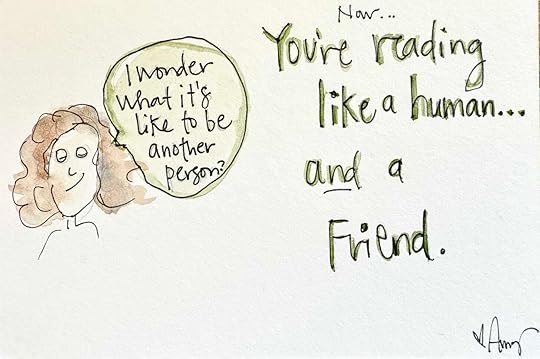 I wonder
what it's
like to be
another
person?
Now...
You're reading
like a human...
and a
Friend.
Amy